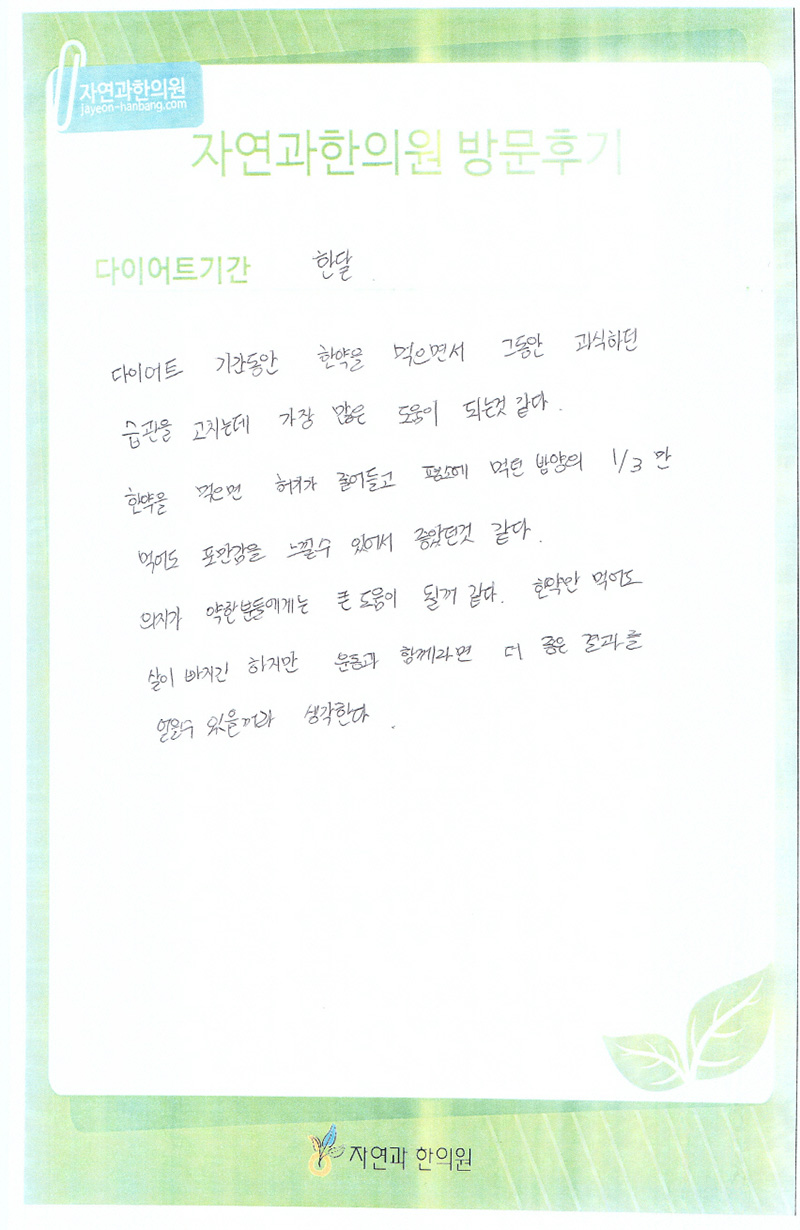 자연과한의원
jayeon-hanbang.com
자연과한의원 방문후기
다이어트기간 한달
다이어트 기간동안 한약을 먹으면서 그동안 과식하던
습관을 고치는데 가장 많은 도움이 되는것 같다.
한약을 먹으면 허기가 줄어들고 평소에 먹던 밥양의 1/3 만
먹어도 포만감을 느낄수 있어서 좋았던것 같다.
의지가 약한분들에게는 큰 도움이 될꺼 같다. 한약만 먹어도
살이 빠지긴 하지만 운동과 함께라면 더 좋은 결과를
얻을수 있을꺼라 생각한다.
자연과 한의원